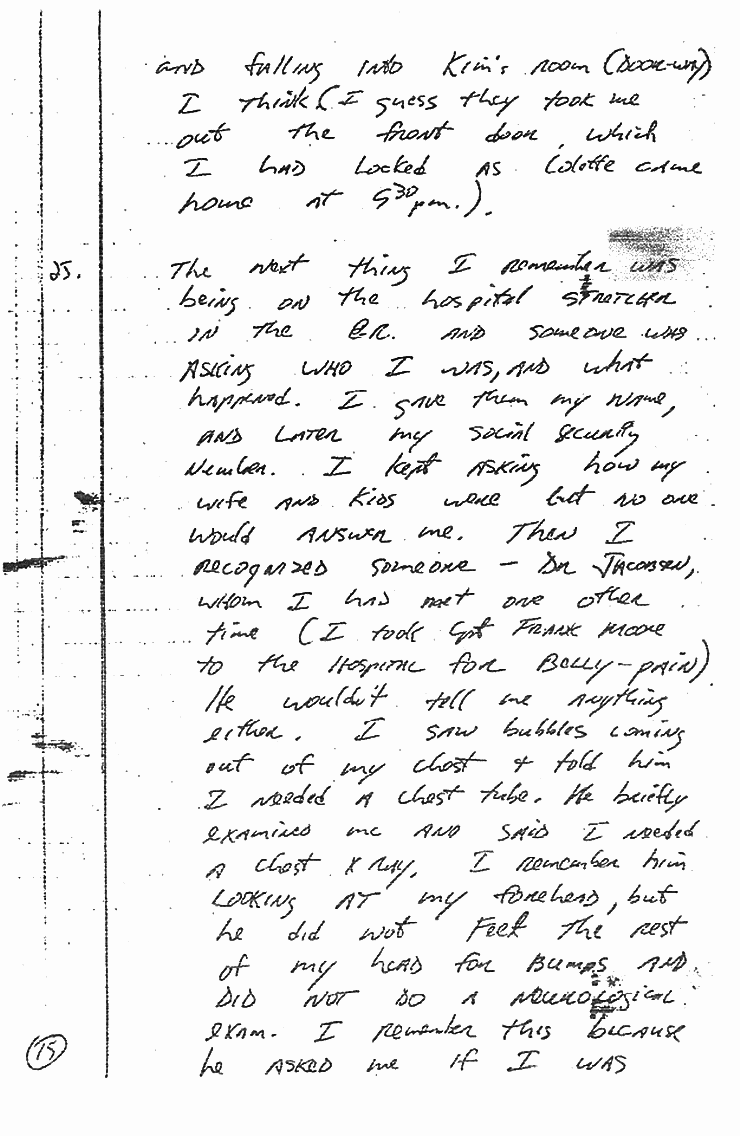 and falling into Kim's room (Door-way)
I think (I guess they took me
out the front door, which
I had locked as Colette came
home at 9 30 pm.).
25. The next thing I remember was
being on the hospital stretcher
in the E.R. and someone was
asking who I was, and what
happened. I gave them my name,
and later my social security
number. I kept asking how my
wife and kids were but no one
would answer me. Then I
recognized someone – Dr Jacobsen,
whom I had met one other
time (I took Cpt Frank Moore
to the Hospital for Belly-pain)
He wouldn't tell me anything
either. I saw bubbles coming
out of my chest + told him
I needed a chest tube. He briefly
examined me and said I needed
a chest X Ray. I remember him
looking at my forehead, but
he did not feel the rest
of my head for Bumps and
did not do a neurological
exam. I remember this because
he asked me if I was
15